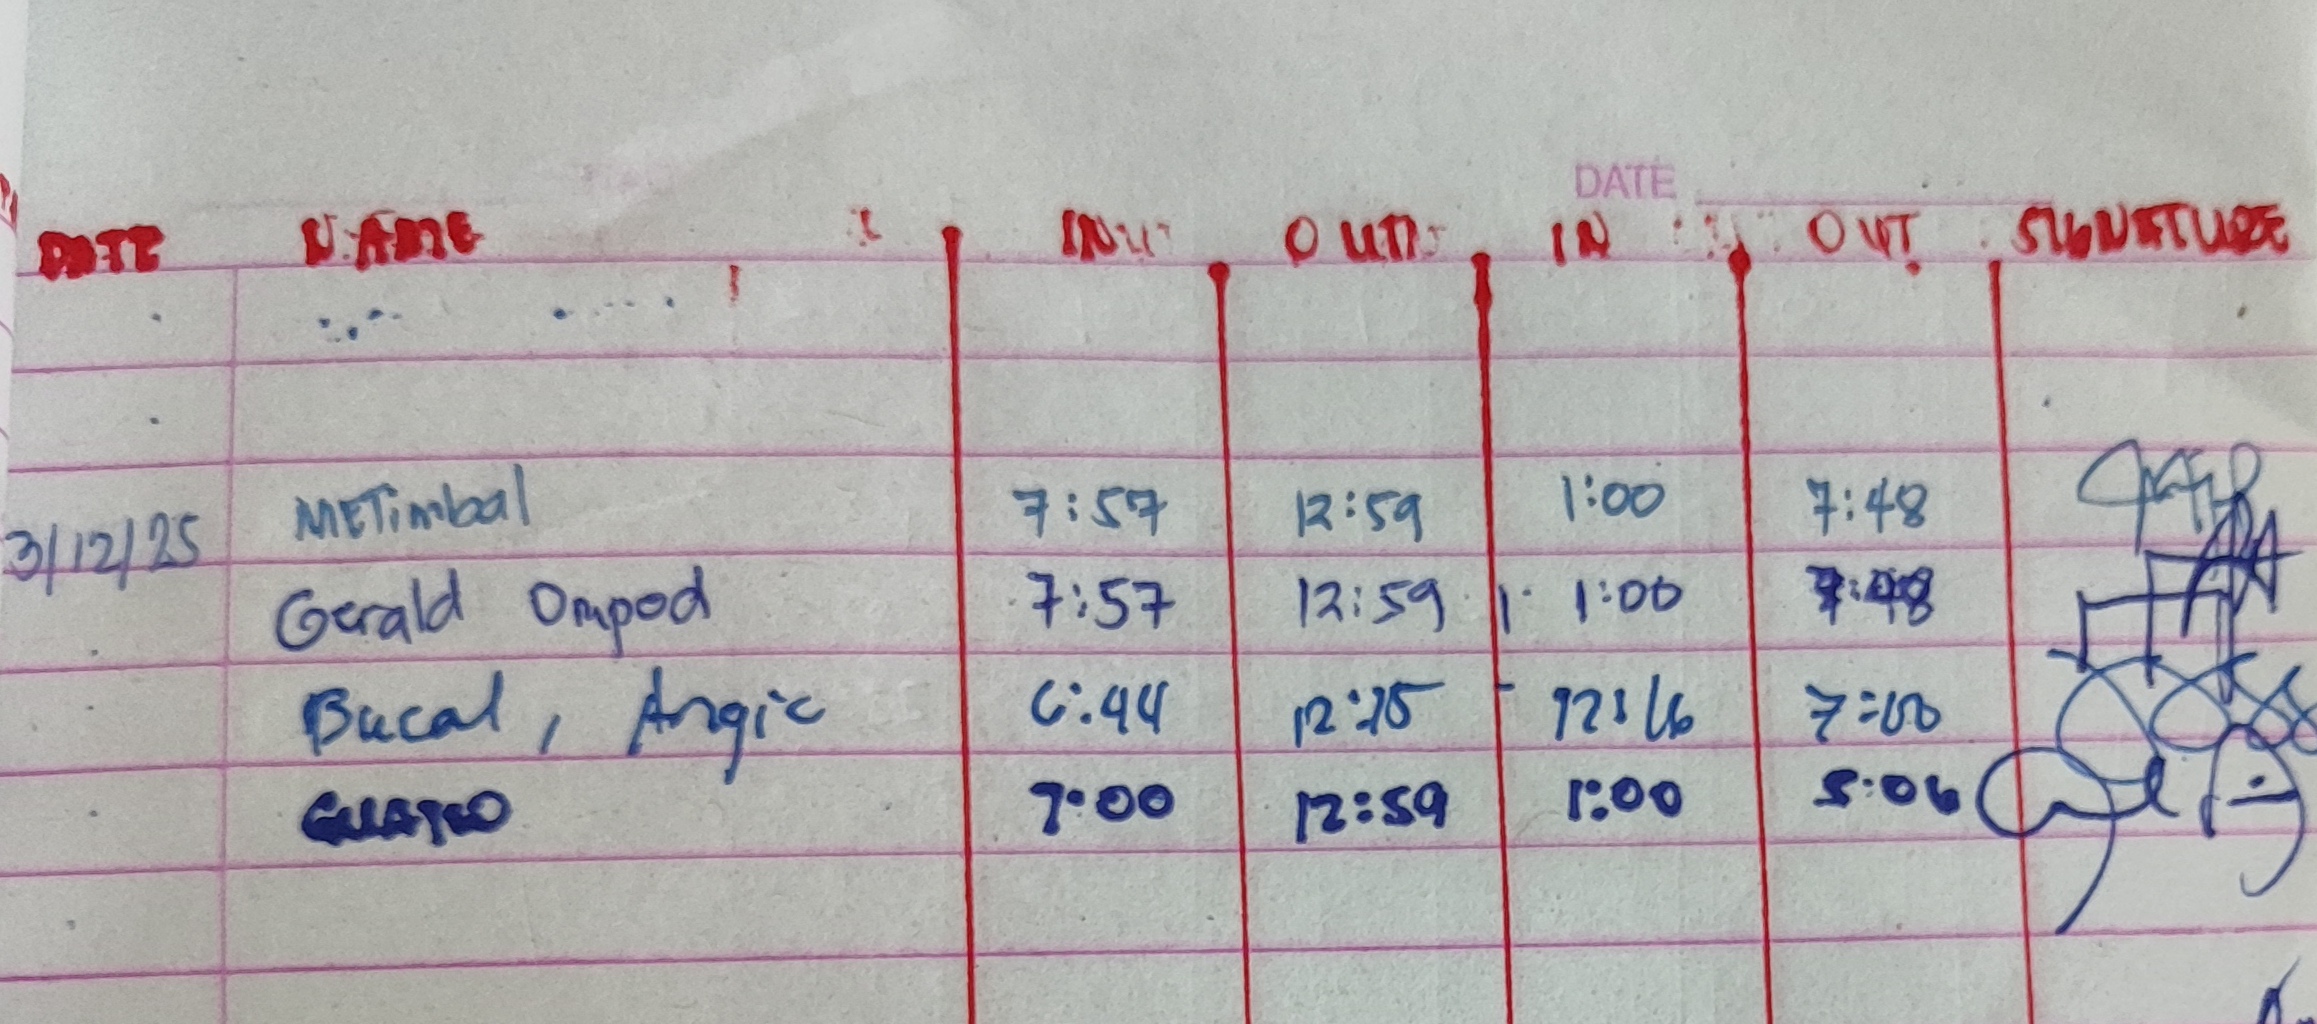 DATE
DATE NAME IN OUT IN OUT SIGNATURE
METimbal 7:57 12:59 1:00 7:48
3/12/25
Gerald Ompod 7:57 12:59 1:00 7:48
Bucal, Angie 6:44 12:15 12:16 7:00
7:00 12:59 1:00 5:06